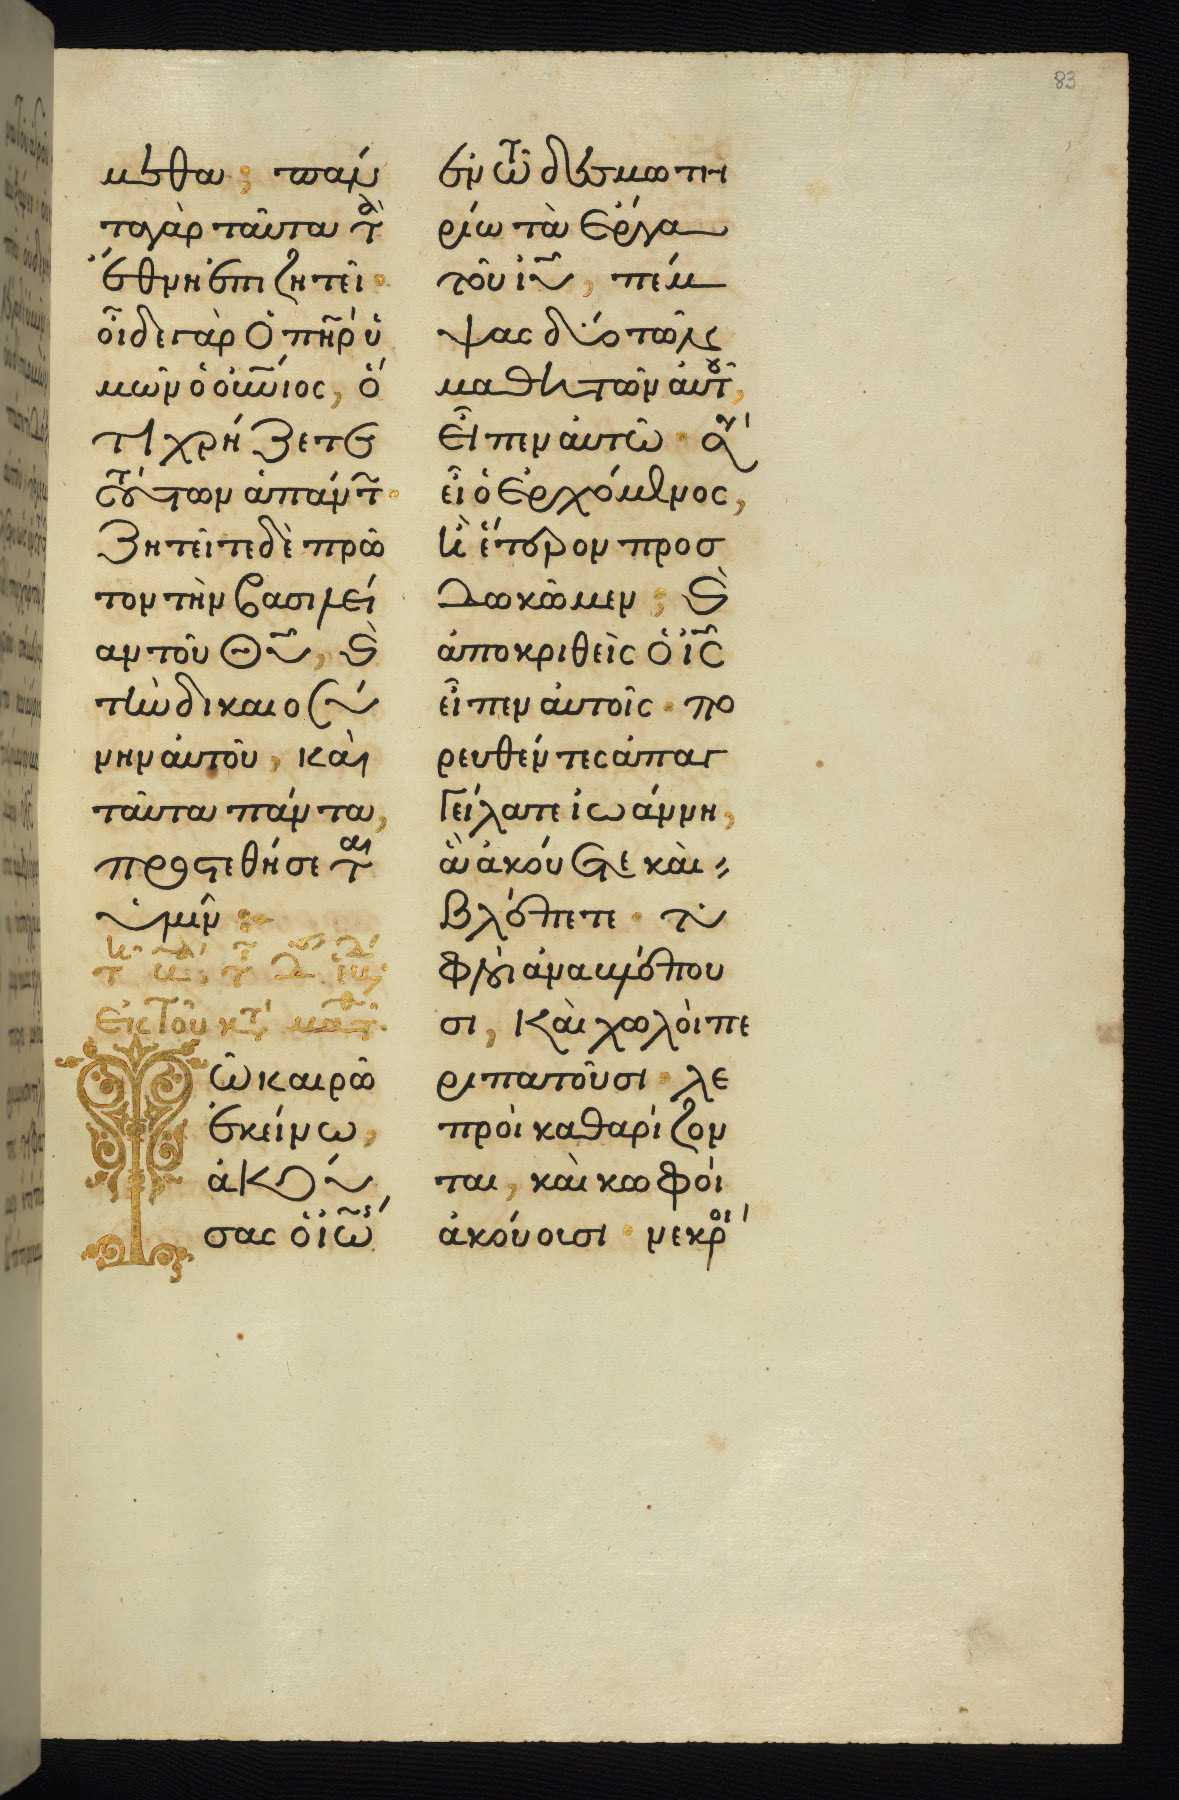 83
μεθα; παν
τα γὰρ ταῦτα τὰ
ἔθνη ἐπιζητεῖ·
οἶδε γὰρ ὁ πηρ ὑ
μῶν ὁ οὐνιος, ὅ
τι χρήζετε
τούτων ἁπάντ·
ζητεῖτε δὲ πρῶ
τον τὴν βασιλεί
αν τοῦ Θυ, καὶ
τὴν δικαιοσύ
νην αὐτοῦ, καὶ
ταῦτα πάντα,
προστεθήσεται
ὑμῖν:
Ἐκ τοῦ κτ ματθ·
Τῶ καιρῶ
ἐκείνω,
ἀκού
σας ὁ ἰω
ἐν τῶ δεσμωτη
ρίω τὰ ἔργα
τοῦ ιυ, πέμ
ψας δύο τῶν
μαθητῶν αὐτοῦ,
εἶπεν αὐτῶ· σὺ
εἶ ὁ ἐρχόμενος,
ἢ ἕτερον προσ
δοκῶμεν; καὶ
ἀποκριθεὶς ὁ ις
εἶπεν αὐτοῖς· πο
ρευθέντες ἀπαγ
γείλατε ἰωάννη,
ἃ ἀκούετε καὶ
βλέπετε· τυ
φλοὶ ἀναβλέπου
σι, καὶ χωλοὶ πε
ριπατοῦσι· λε
προὶ καθαρίζον
ται, καὶ κωφοὶ
ἀκούουσι· νεκροὶ